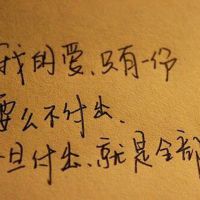 我的爱,只有一份
要么不付出,
一旦付出、就是全部